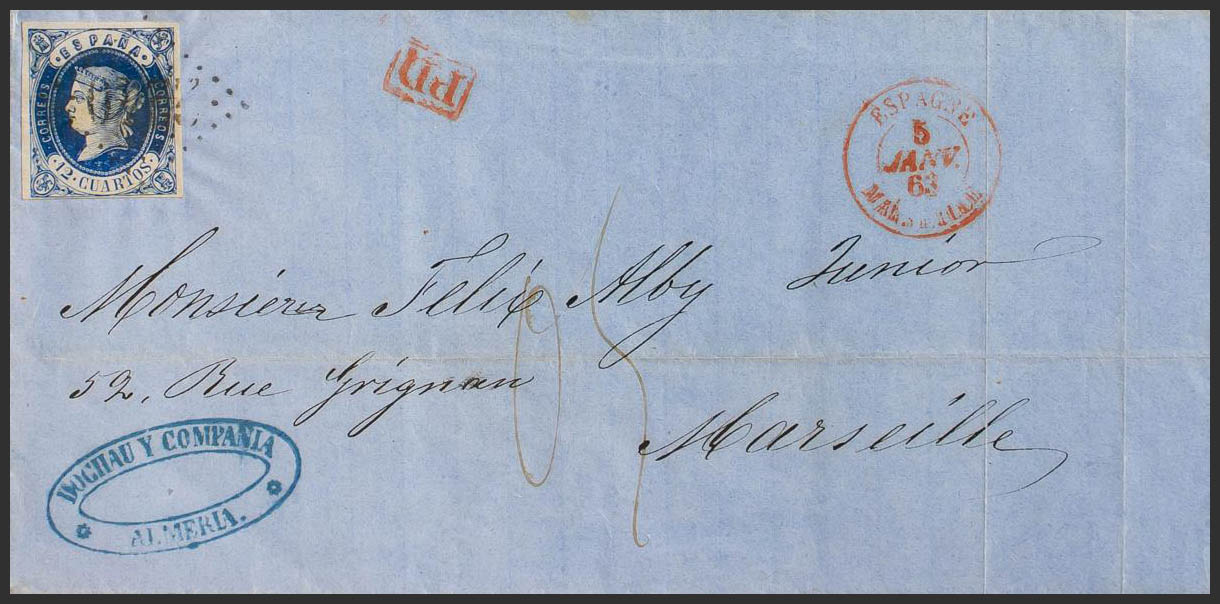 · ESPAÑA ·
CORREOS
CORREOS
12 · CUARTOS
PD
ESPAGNE
5
JANV.
63
MARSEILLE
Monsieur Felix Alby Junior
52, Rue Grignan
Marseille
DOCHAU Y COMPAÑIA
ALMERIA.